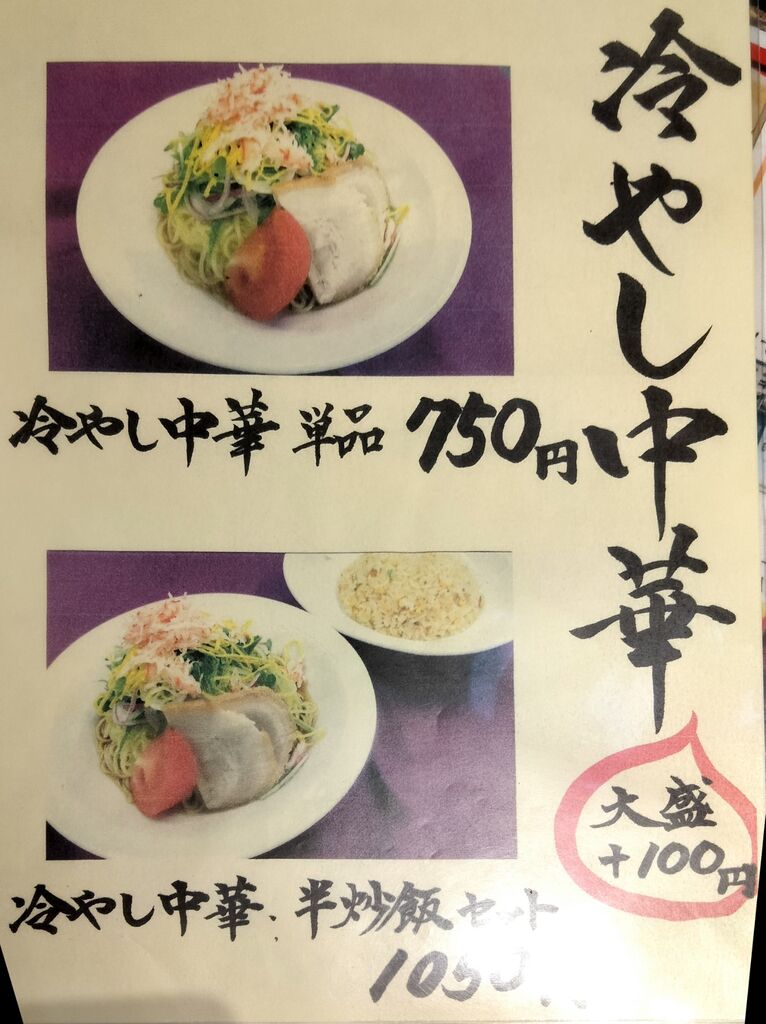 冷やし中華
冷やし中華 単品 750円
大盛
+100円
冷やし中華、半炒飯セット
1050円